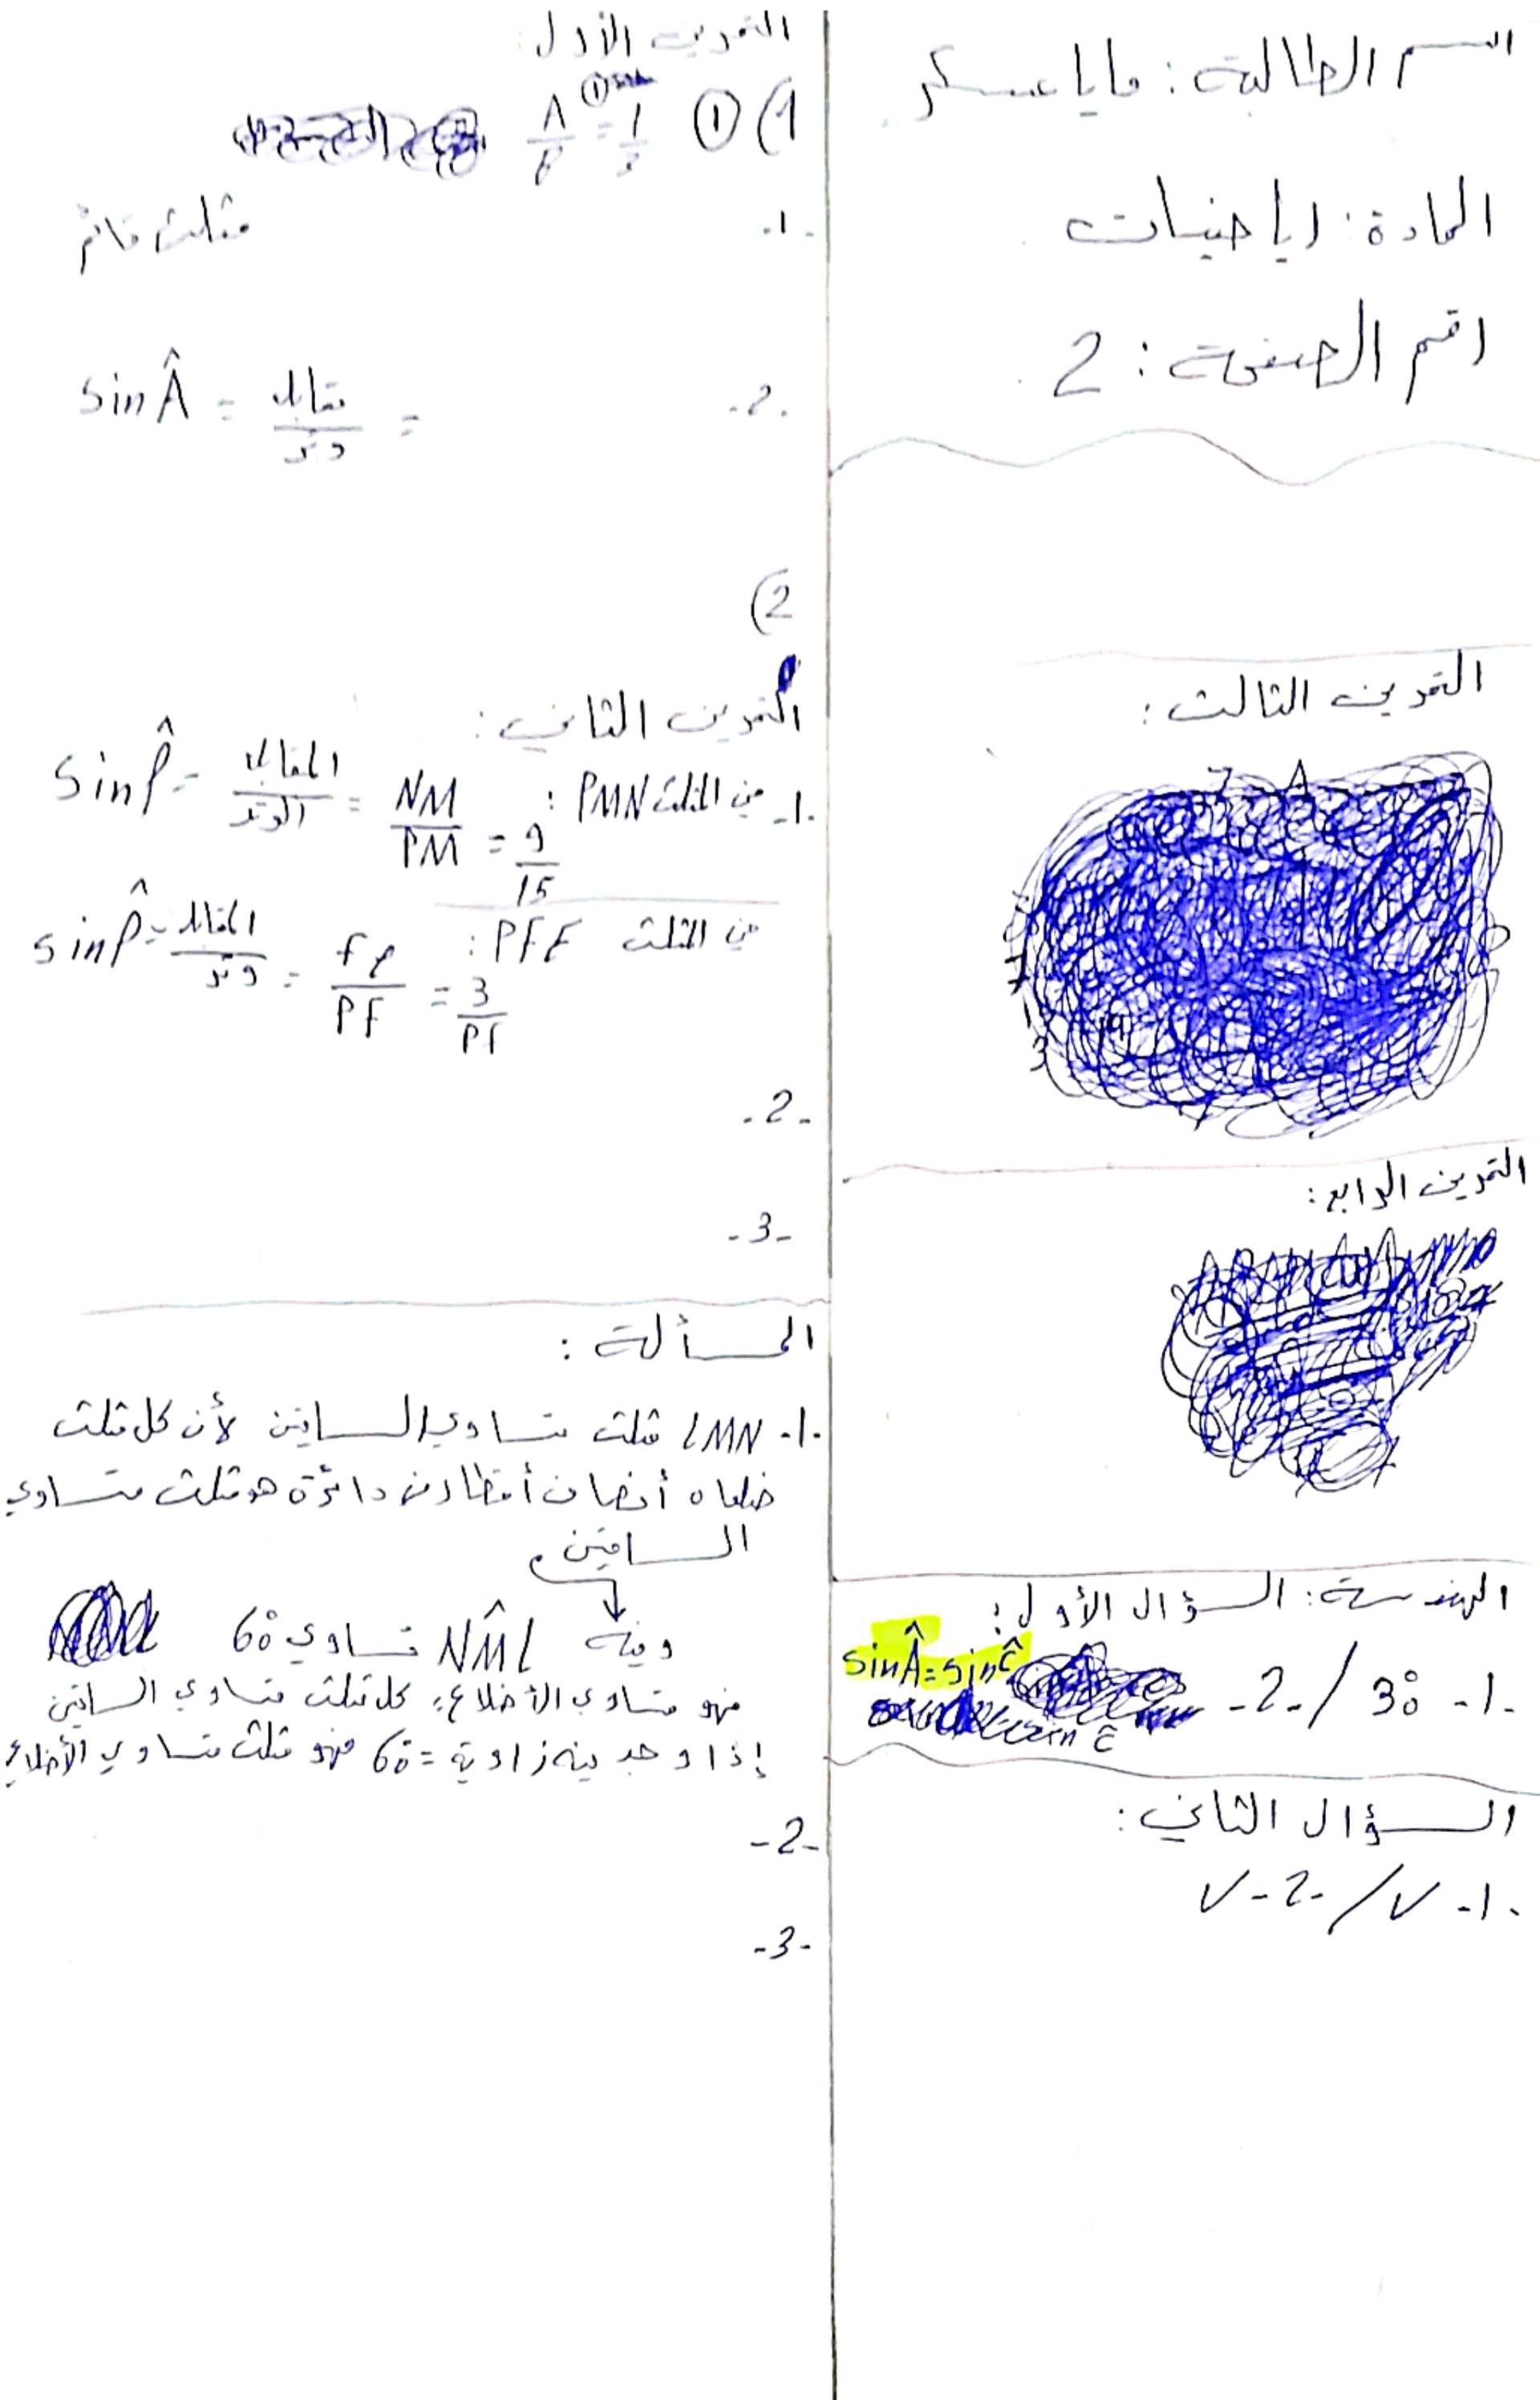 اسم الطالبة: مايا عسكر
المادة: رياضيات
رقم الصفحة: 2
التمرين الثالث:
التمرين الرابع:
الهندسة: السؤال الأول:
-1- 30° / -2- sin Â = sin Ĉ
السؤال الثاني:
-1- ✓ / -2- ✓
التمرين الأول:
1) ①
-1- مثلث قائم
-2- sin Â = مقابل / وتر =
2)
التمرين الثاني:
-1- من المثلث PMN: sin P̂ = المقابل / الوتر = NM / PM = 9 / 15
من المثلث PFE: sin P̂ = المقابل / وتر = FE / PF = 3 / PF
-2-
-3-
المسألة:
-1- LMN مثلث متساوي الساقين لأن كل مثلث
ضلعاه أنصاف أقطار من دائرة هو مثلث متساوي
الساقين
وفيه NM̂L تساوي 60°
فهو متساوي الأضلاع: كل مثلث متساوي الساقين
إذا وجد فيه زاوية = 60° فهو مثلث متساوي الأضلاع
-2-
-3-